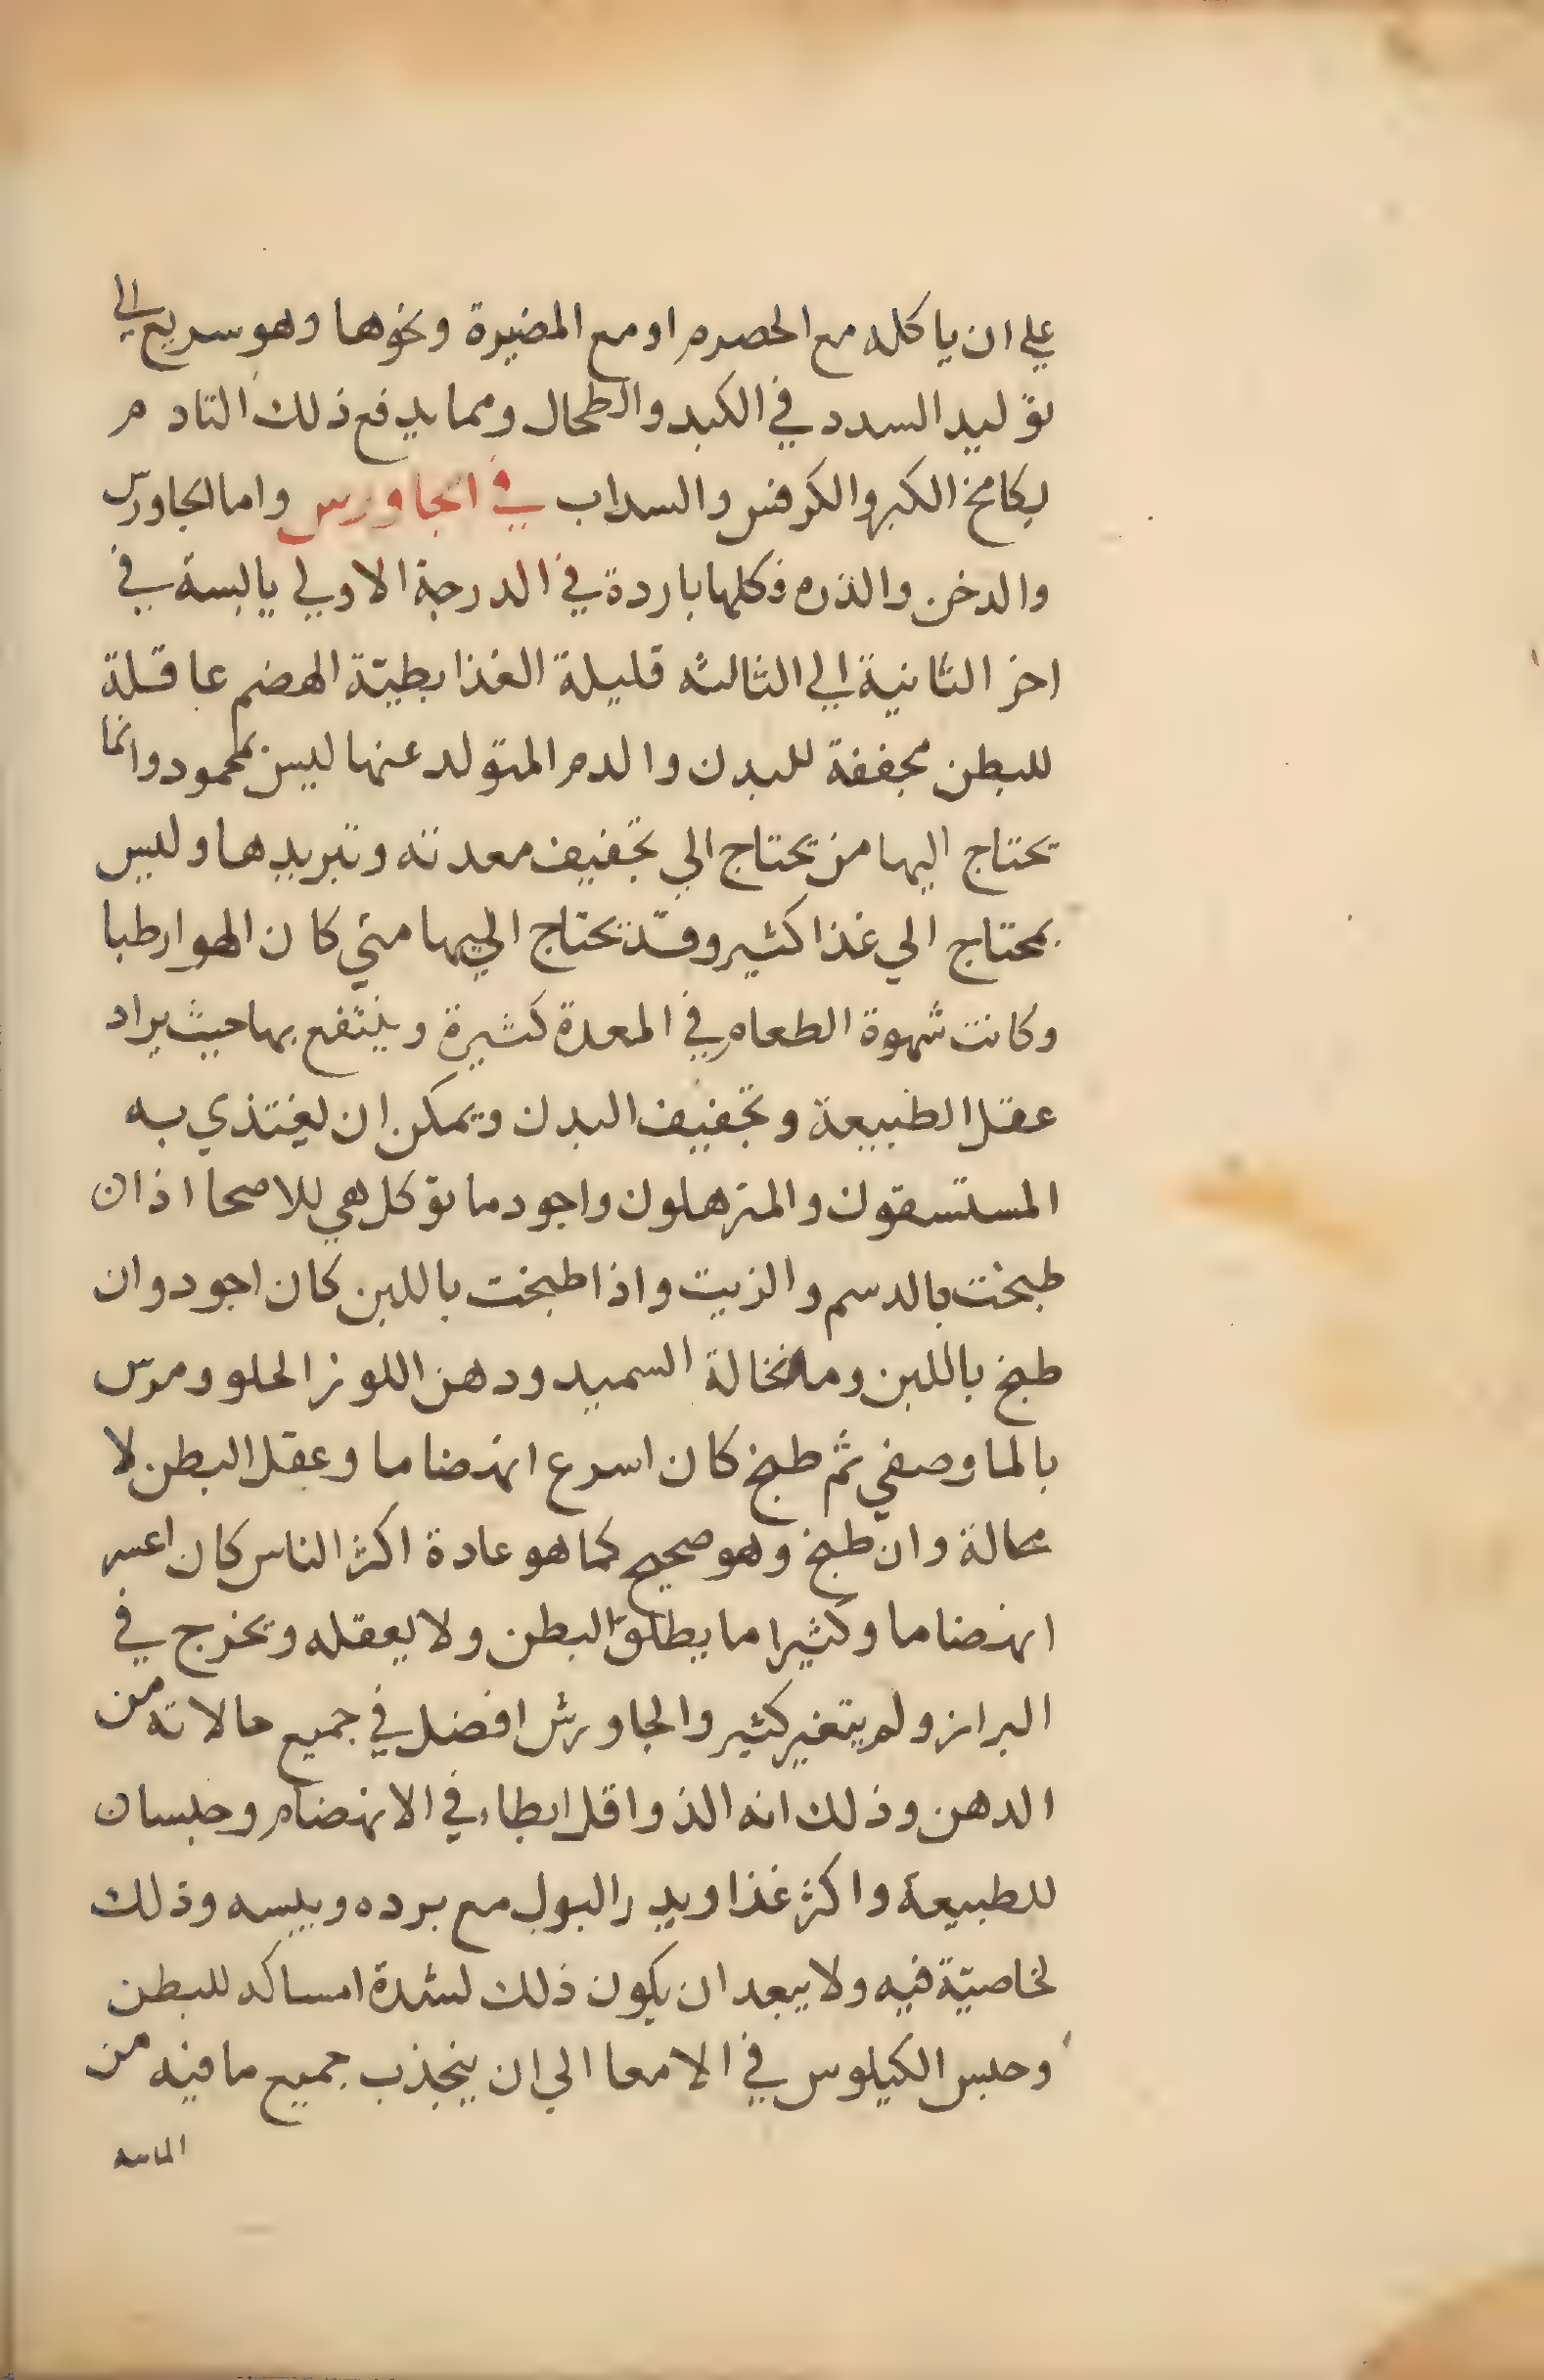 علي ان ياكله مع الحصرم او مع المضيرة ونحوها وهو سريع الي
توليد السدد في الكبد والطحال ومما يدفع ذلك التادم
بكامخ الكبر والكرفس والسداب في الجاورس واما الجاورس
والدخن والذره فكلها باردة في الدرجة الاولي يابسة في
اخر الثانية الي الثالثه قليلة الغذا بطيّة الهضم عاقلة
للبطن مجففة للبدن والدم المتولد عنها ليس بمحمود وانما
يحتاج اليها من يحتاج الي تجفيف معدته وتبريدها وليس
بمحتاج الي غذا كثير وقد يحتاج اليها متي كان الهوا رطبا
وكانت شهوة الطعام في المعدة كثيرة وينتفع بها حيث يراد
عقل الطبيعة وتجفيف البدن ويمكن ان يغتذي به
المستسقون والمترهلون واجود ما توكل هي للاصحا اذان
طبخت بالدسم والزيت واذا طبخت باللبن كان اجود وان
طبخ باللبن وما نخالة السميد ودهن اللوز الحلو ومرس
بالما وصفي ثم طبخ كان اسرع انهضاما وعقل البطن لا
محالة وان طبخ وهو صحيح كما هو عادة اكثر الناس كان اعسر
انهضاما وكثيرا ما يطلق البطن ولا يعقله ويخرج في
البراز ولم يتغير كثير والجاورش افضل في جميع حالاته من
الدهن وذلك انه الذ واقل ابطاء في الانهضام وحبسان
للطبيعة واكثر غذا ويدر البول مع برده ويبسه وذلك
لخاصيّة فيه ولا يبعد ان يكون ذلك لشدة امساكه للبطن
وحبس الكيلوس في الامعا الي ان ينجذب جميع ما فيه من
المايية